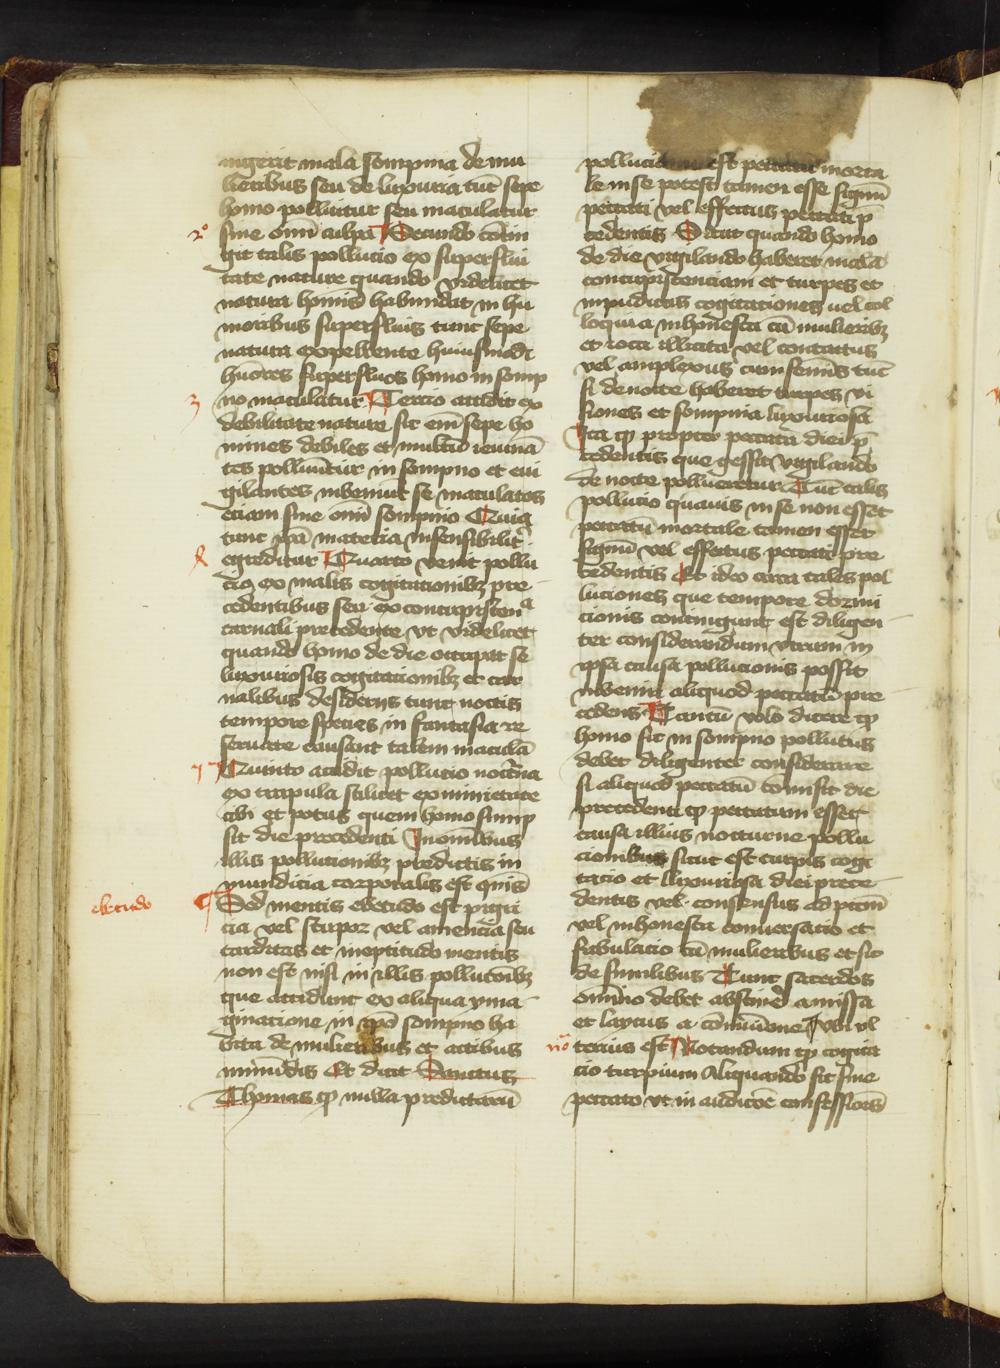 ingerit mala sompnia de mu
lieribus seu de luxuria tūc sepe
homo polluitur seu maculatur
2º sine omī culpa Secundo cōtin
git talis pollucio ex superflui
tate nature quando videlicet
natura homīs habundat in hu
moribus superfluis tunc sepe
natura expellente huiusmodi
huōres superfluos homo in somp
3 no maculatur Tercio accidit ex
debilitate nature sic eni sepe ho
mines debiles et multū ieiunā
tes polluūtur in sompno et eui
gilantes inveniūt se maculatos
eciam sine omī sompnio
tunc materia insensibilit
egreditur Quarto venit pollu
cio ex malis cogitacionibꝫ pre
cedentibus seu ex concupiscenª
carnali precedente vt videlicet
quando homo de die occupat se
luxuriosis cogitacionibꝫ et car
nalibus desiderijs tunc noctis
tempore species in fantasia re
seruate causant talem maculā
Quinto accidit pollucio noctīna
ex crapula scilicet ex nimietate
cibi et potus quem homo sump
sit die precedenti In omībus
illis pollucionibꝫ predictis in
mundicia corporalis est
ebetudo Sed mentis ebetudo est pigri
cia vel stupor vel amencia seu
tarditas et ineptitudo mentis
non est nisi in illis pollucōibꝫ
que accidunt ex aliqua yma
ginacione in ipō sompno ha
bita de mulieribus et actibus
inmūdis Et dicit Sanctus
Thomas ꝙ nulla predictarū
pollucionum est peccatū morta
le in se potest tamen esse signū
peccati vel effectus peccati p̄
cedentis Sicut quando homo
de die vigilando haberet malā
concupiscenciam et turpes et
inpudicas cogitaciones vel col
loquia inhonesta cū mulieribꝫ
et loca illicita vel contactus
vel amplexus cum femīs tūc
si de nocte haberet turpes vi
siones et sompnia luxuriosa
Ita ꝙ propter peccata diei p̄
cedentis que gessit vigilando
de nocte pollueretur Tūc talis
pollucio quauis in se non esset
peccatū mortale tamen esset
signū vel effectus peccati pre
cedentis Et ideo circa tales pol
luciones que tempore dormi
cionis contingunt est diligen
ter considerandum vtrum in
ipsa causa pollucionis possit
inveniri aliquod peccatū pre
cedens Tantū volo dicere ꝙ
homo sic in sompno pollutus
debet diligenter considerare
si aliquod peccatū cōmisit die
precedenti ꝙ peccatum esset
causa illius nocturne pollu
cionibus sicut est turpis cogi
tacio et luxuriosa diei prece
dentis vel consensus ad pctm̄
vel inhonesta conuersacio et
fabulacio cū mulieribus et sic
de similibus Tunc sacerdos
omīno debet abstinē a missa
et laycus a cōmūione
nō Notandum ꝙ cogita
cio turpium Aliquando fit sine
peccato vt in audicōe confessionis